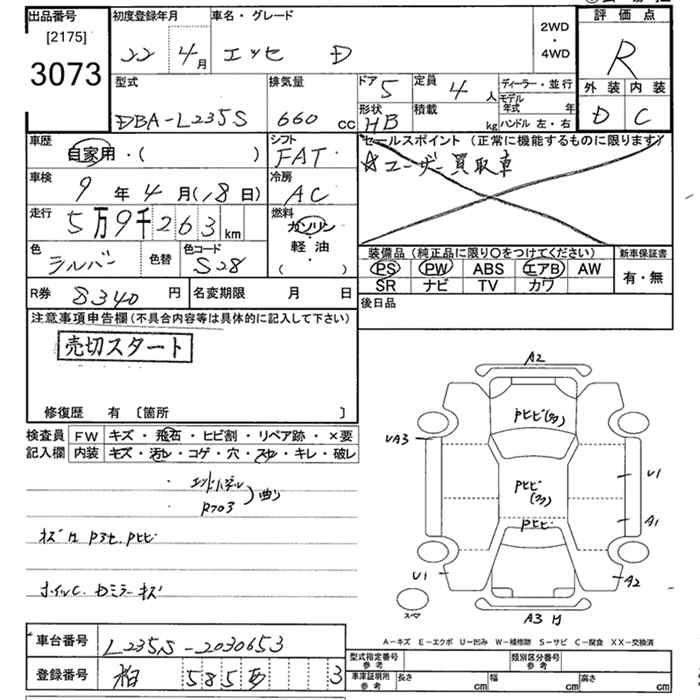 出品番号 初度登録年月 車名・グレード 2WD・4WD 評価点
[2175]
3073
22年 4月 エッセ D R
外装 内装
D C
型式 排気量 ドア 5 定員 4人 ディーラー・並行
DBA-L235S 660cc 形状 HB 積載 kg モデル年式 年
ハンドル 左・右
車歴 自家用・( ) シフト FAT
セールスポイント (正常に機能するものに限ります)
☆ユーザー買取車
車検 9年 4月 (18日) 冷房 AC
走行 5万9千263km 燃料 ガソリン・軽油 ( )
色 シルバー 色替 色コード S28
装備品 (純正品に限り○をつけてください) 新車保証書
PS PW ABS エアB AW 有・無
SR ナビ TV カワ
R券 8340円 名変期限 月 日
後日品
注意事項申告欄 (不具合内容等は具体的に記入して下さい)
売切スタート
修復歴 有 〔箇所 〕
検査員記入欄 FW キズ・飛石・ヒビ割・リペア跡・×要
内装 キズ・汚レ・コゲ・穴・スレ・キレ・破レ
曲り
A2
Pヒビ
UA3
Pヒビ
U1
Pヒビ
A1
U1
A2
スペア
A3
ホイルC. Dミラーキズ
A-キズ E-エクボ U-凹み W-補修跡 S-サビ C-腐食 XX-交換済
車台番号 L235S-2030653
型式指定番号 参考 類別区分番号 参考
登録番号 柏 585 3
車庫証明用 参考 長さ cm 幅 cm 高さ cm